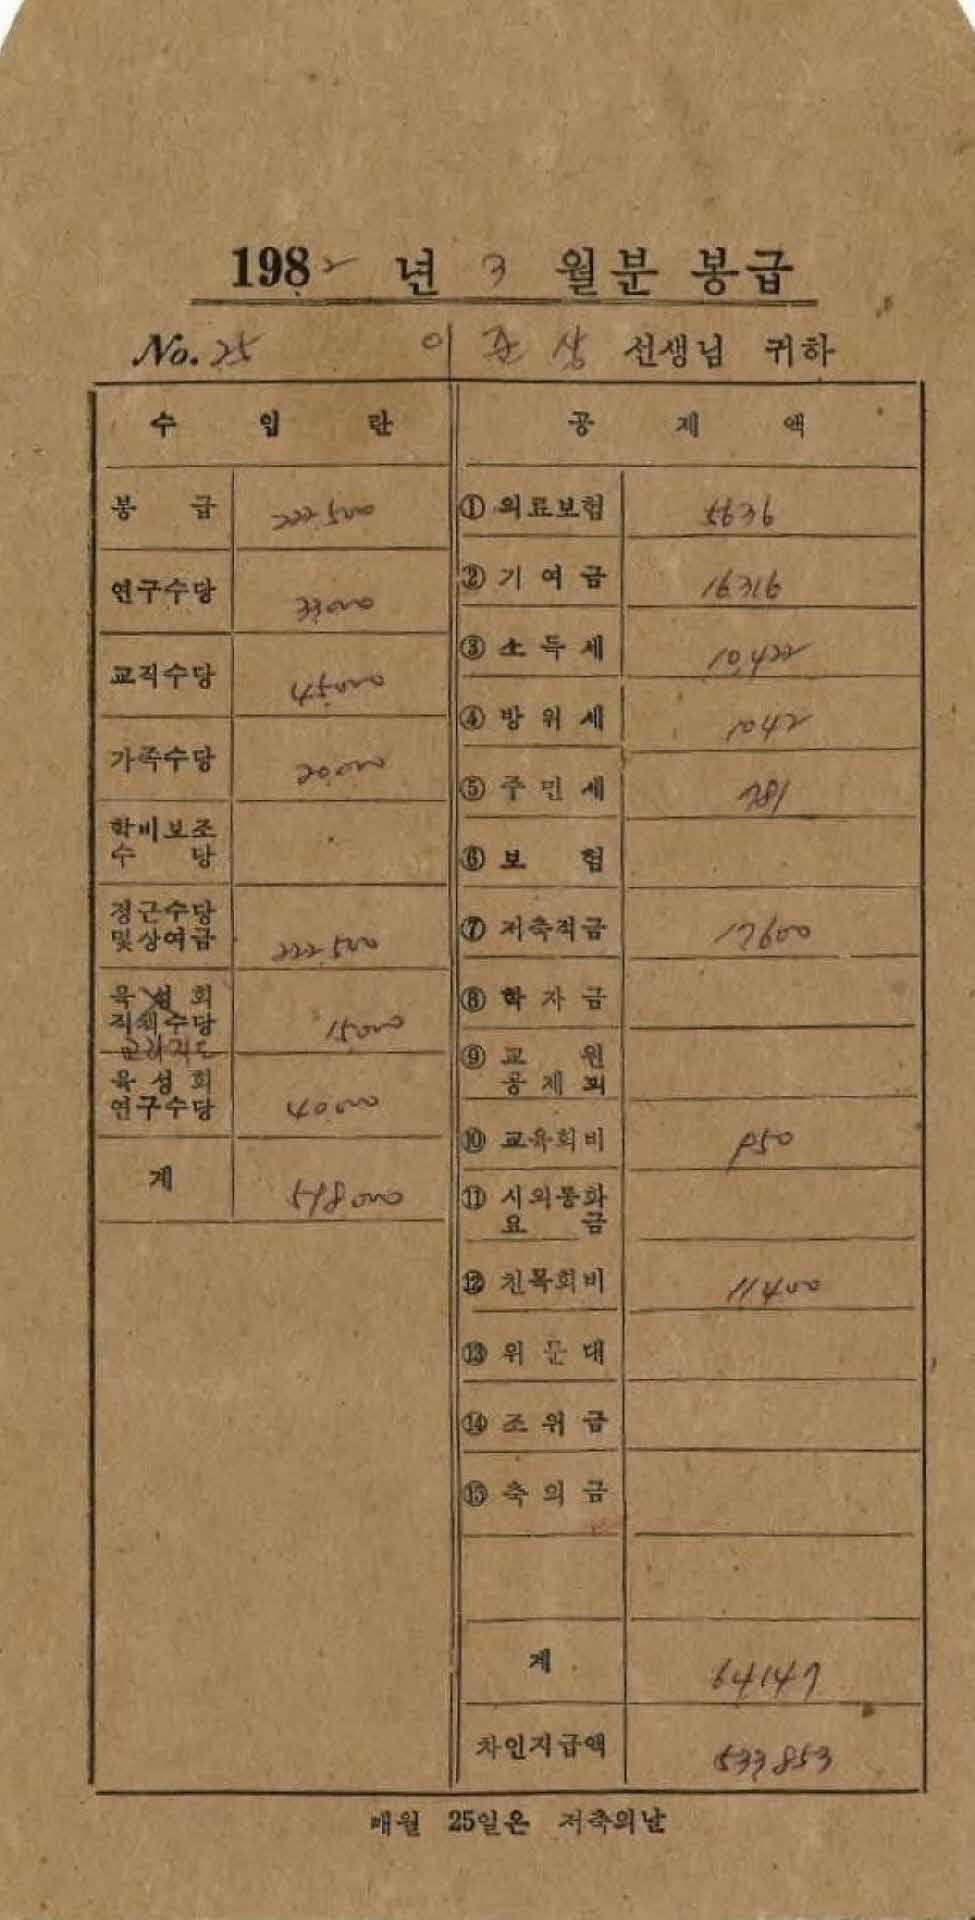 1982 년 3 월분 봉급
No. 25 이 준 상 선생님 귀하
수 입 란
봉 급 222,500
연구수당 33,000
교직수당 45,000
가족수당 20,000
학비보조
수 당
정근수당
및상여금 222,500
육성회
직책수당 15,000
육성회
연구수당 40,000
계 598,000
공 제 액
① 의료보험 5636
② 기여금 16316
③ 소득세 10,422
④ 방위세 1042
⑤ 주민세 781
⑥ 보 험
⑦ 저축적금 17600
⑧ 학자금
⑨ 교 원
공 제 회
⑩ 교육회비 950
⑪ 시외통화
요 금
⑫ 친목회비 11400
⑬ 위문대
⑭ 조위금
⑮ 축의금
계 64147
차인지급액 533,853
매월 25일은 저축의날